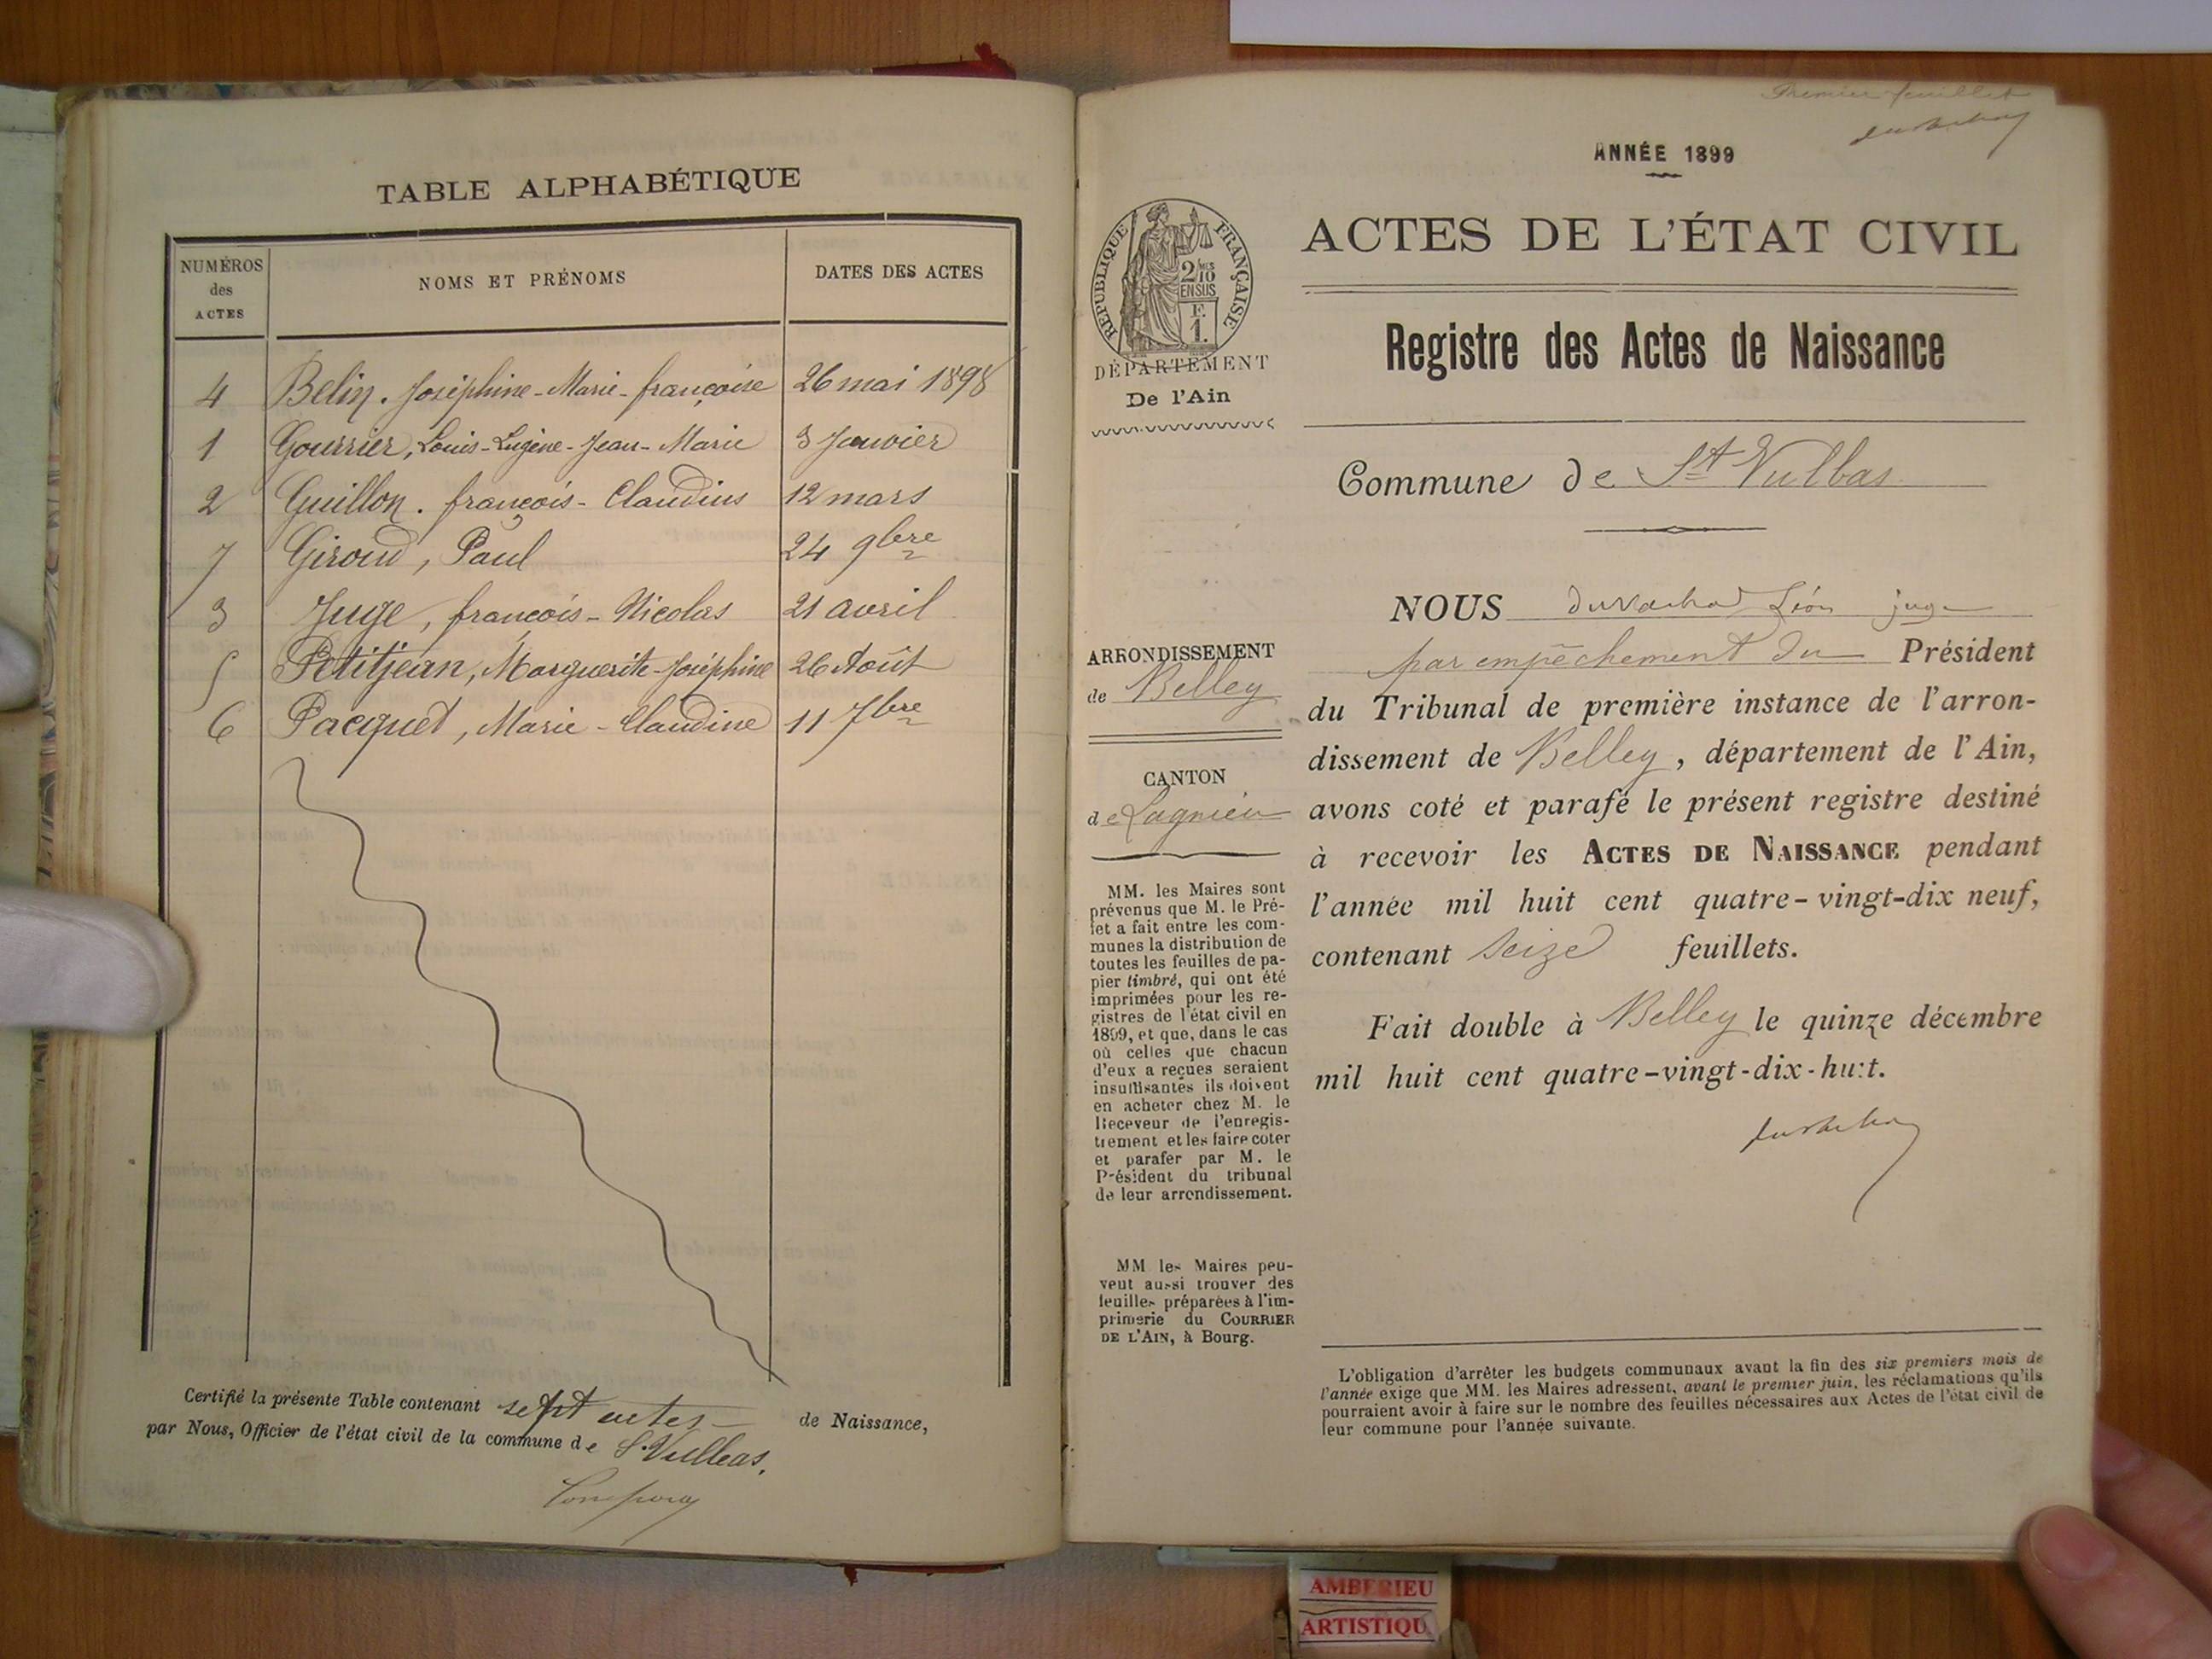 TABLE ALPHABÉTIQUE
NUMÉROS
des
ACTES
NOMS ET PRÉNOMS
DATES DES ACTES
4 Belin. Joséphine-Marie-françoise 26 mai 1898
1 Gourrier, Louis-Eugène-Jean-Marie 3 Janvier
2 Guillon. françois-Claudius 12 mars
7 Giroud, Paul 24 9bre
3 Juge, françois-Nicolas 21 avril
5 Petitjean, Marguerite-Joséphine 26 Août
6 Pacquet, Marie-Claudine 11 7bre
Certifié la présente Table contenant sept actes de Naissance,
par Nous, Officier de l'état civil de la commune de St Vulbas.
Premier feuillet
ANNÉE 1899
RÉPUBLIQUE FRANÇAISE
2/10
EN SUS
F.
1.
DÉPARTEMENT
De l'Ain
ACTES DE L'ÉTAT CIVIL
Registre des Actes de Naissance
Commune de St Vulbas
ARRONDISSEMENT
de Belley
CANTON
de Lagnieu
MM. les Maires sont
prévenus que M. le Pré-
fet a fait entre les com-
munes la distribution de
toutes les feuilles de pa-
pier timbré, qui ont été
imprimées pour les re-
gistres de l'état civil en
1899, et que, dans le cas
où celles que chacun
d'eux a reçues seraient
insuffisantes ils doivent
en acheter chez M. le
Receveur de l'enregis-
trement et les faire coter
et parafer par M. le
Président du tribunal
de leur arrondissement.
MM les Maires peu-
vent aussi trouver des
feuilles préparées à l'im-
primerie du COURRIER
DE L'AIN, à Bourg.
NOUS Léon juge
par empêchement du Président
du Tribunal de première instance de l'arron-
dissement de Belley, département de l'Ain,
avons coté et parafé le présent registre destiné
à recevoir les ACTES DE NAISSANCE pendant
l'année mil huit cent quatre-vingt-dix neuf,
contenant seize feuillets.
Fait double à Belley le quinze décembre
mil huit cent quatre-vingt-dix-huit.
L'obligation d'arrêter les budgets communaux avant la fin des six premiers mois de
l'année exige que MM. les Maires adressent, avant le premier juin, les réclamations qu'ils
pourraient avoir à faire sur le nombre des feuilles nécessaires aux Actes de l'état civil de
leur commune pour l'année suivante.
AMBERIEU
ARTISTIQU